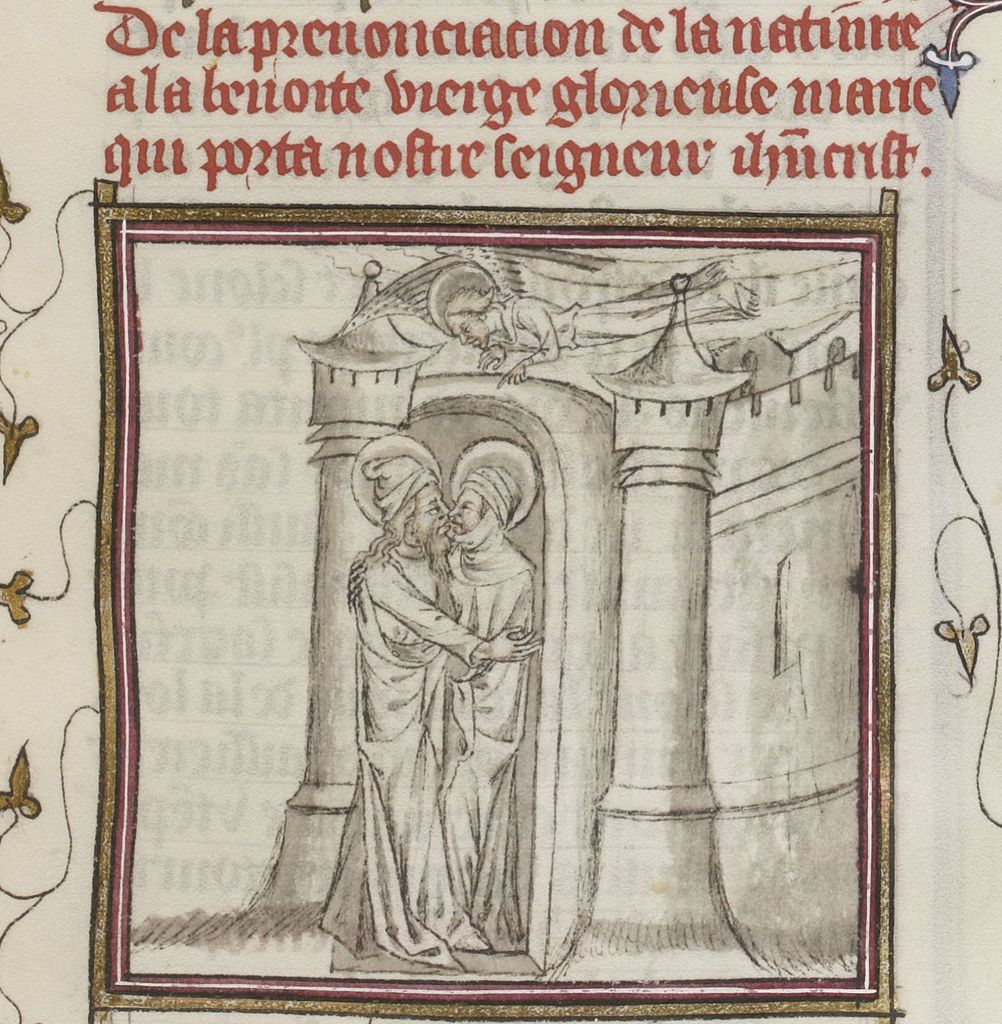 De la prenonciacion de la natiuite
a la benoite vierge glorieuse marie
qui porta nostre seigneur ihūcrist.